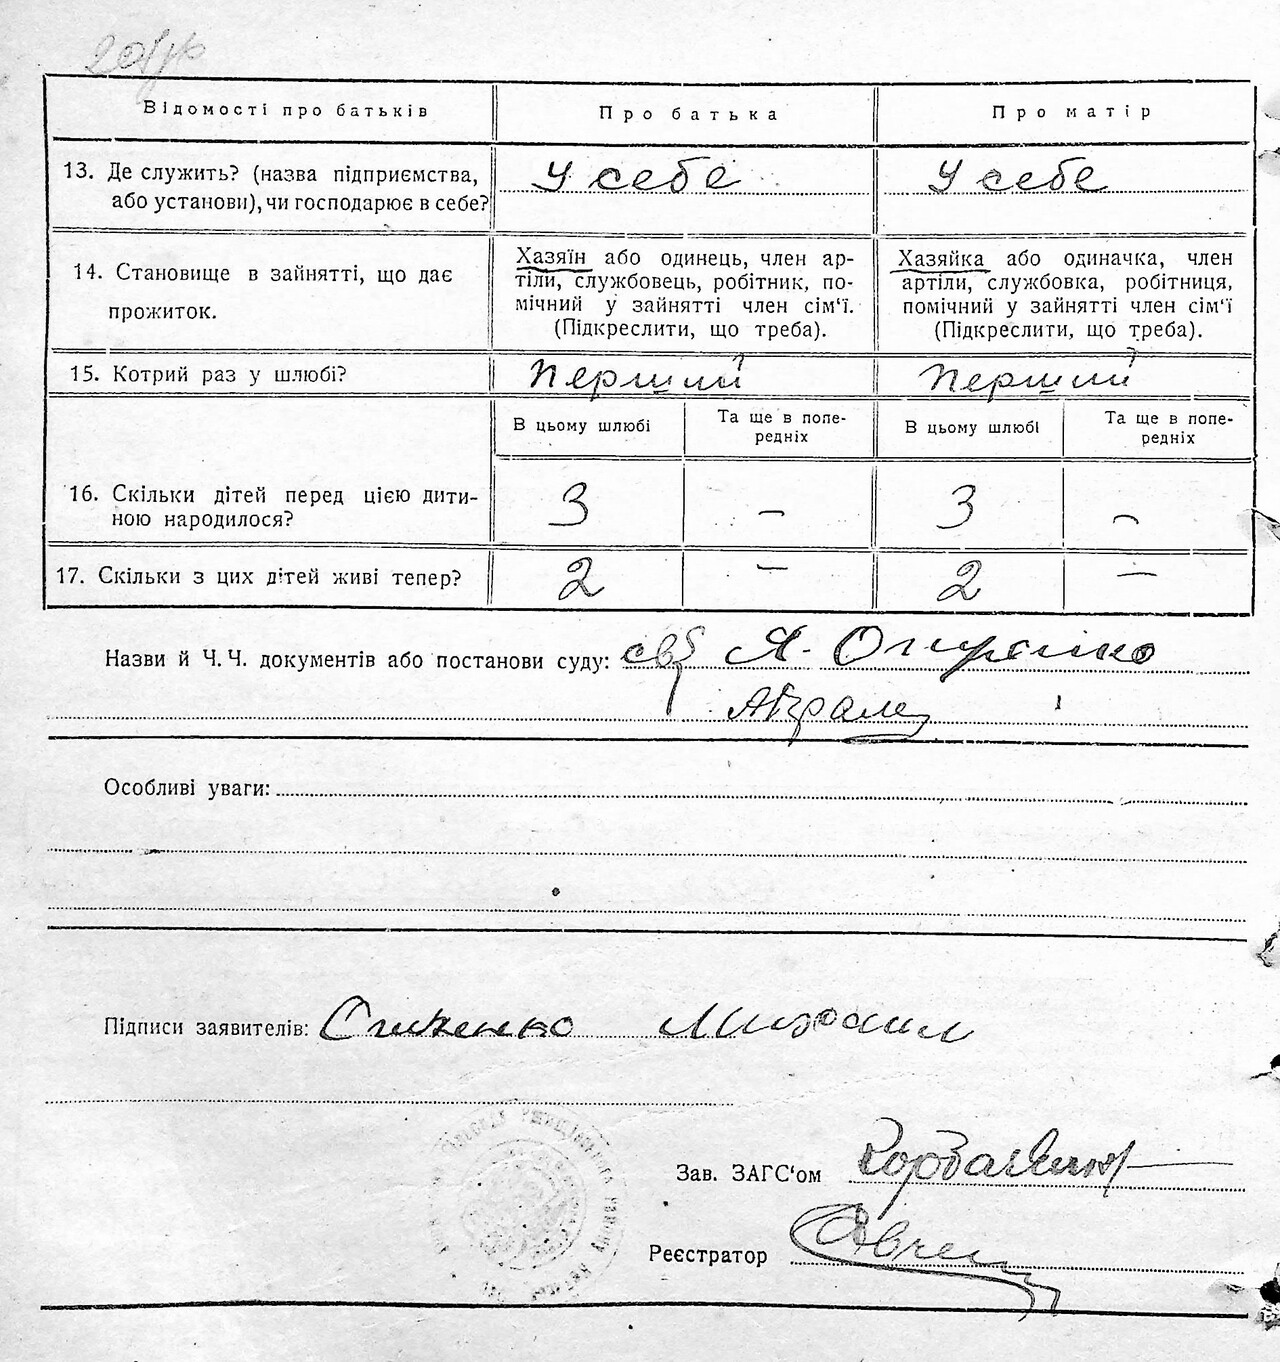 Відомості про батьків
Про батька
Про матір
13. Де служить? (назва підприємства,
або установи), чи господарює в себе?
У себе
У себе
14. Становище в зайнятті, що дає
прожиток.
Хазяїн або одинець, член ар-
тіли, службовець, робітник, по-
мічний у зайнятті член сім‘ї.
(Підкреслити, що треба).
Хазяйка або одиначка, член
артіли, службовка, робітниця,
помічний у зайнятті член сім‘ї
(Підкреслити, що треба).
15. Котрий раз у шлюбі?
Перший
Перший
В цьому шлюбі
Та ще в попе-
редніх
В цьому шлюбі
Та ще в попе-
редніх
16. Скільки дітей перед цією дити-
ною народилося?
3
–
3
–
17. Скільки з цих дітей живі тепер?
2
–
2
–
Назви й Ч. Ч. документів або постанови суду:
Особливі уваги:
Підписи заявителів: Михаил
Зав. ЗАГС‘ом
Реєстратор